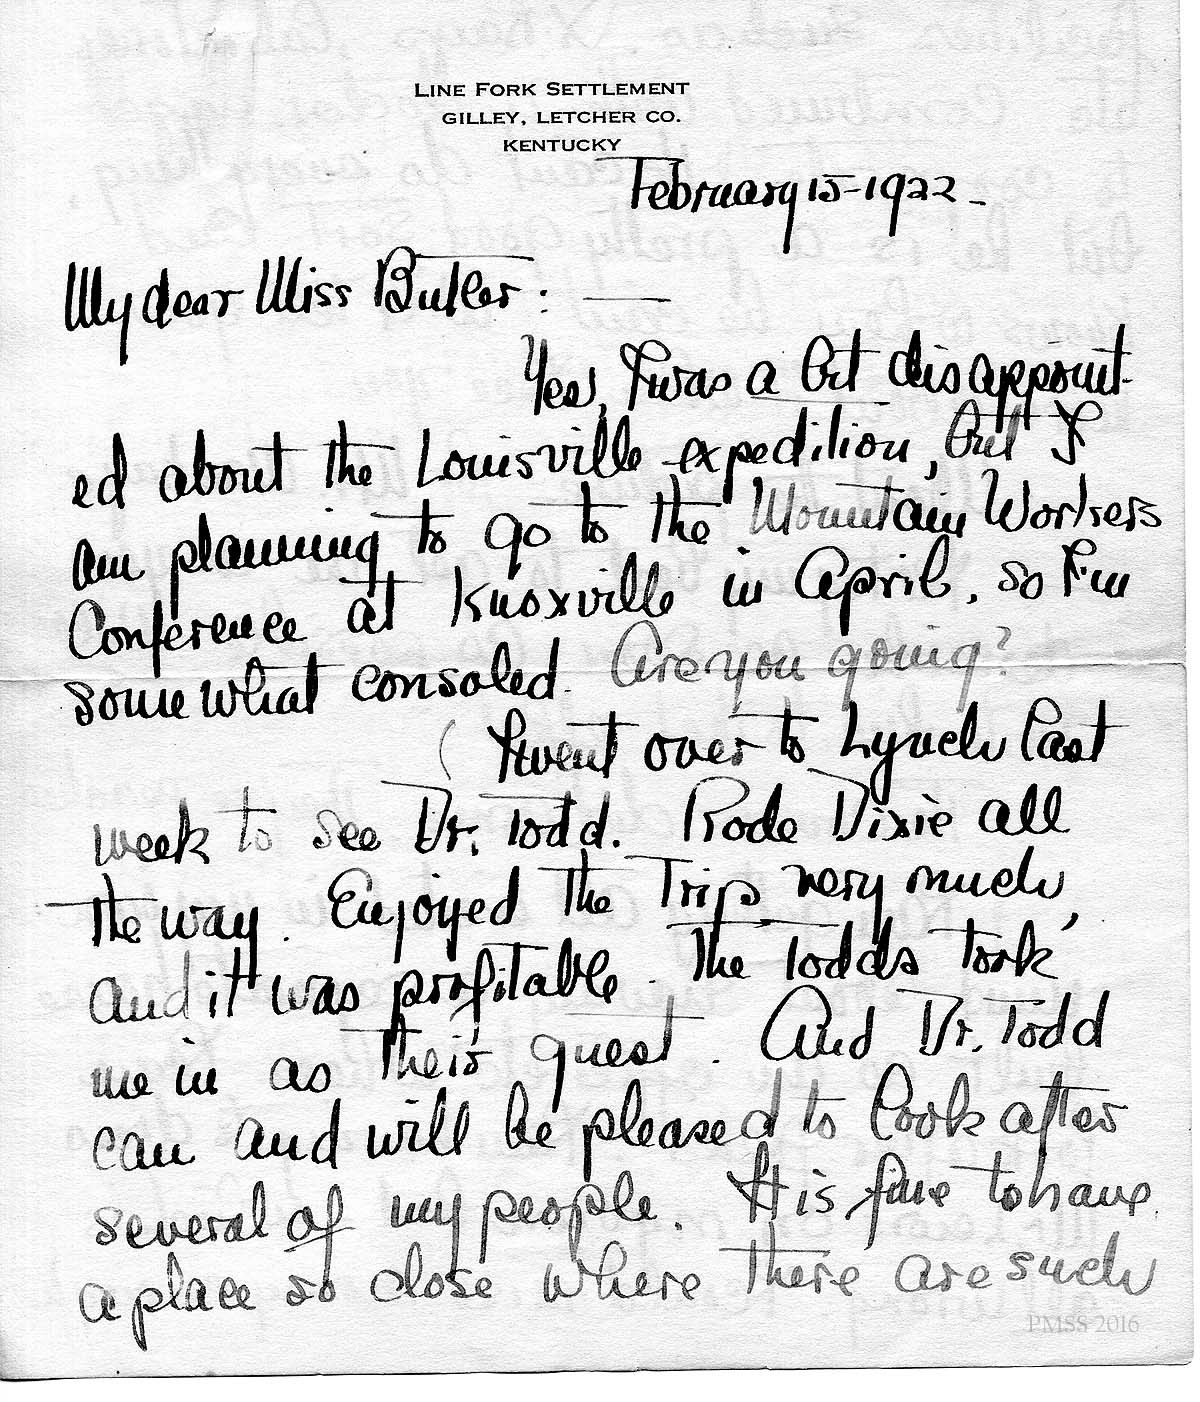 LINE FORK SETTLEMENT
GILLEY, LETCHER CO.
KENTUCKY
February 15-1922-
My dear Miss Butler: —
Yes, I was a bit disappoint-
ed about the Louisville expedition, but I
am planning to go to the Mountain Workers
Conference at Knoxville in April, so I'm
somewhat consoled. Are you going?
I went over to Lynch last
week to see Dr. Todd. Rode Dixie all
the way. Enjoyed the trip very much,
and it was profitable. The Todds took
me in as their guest. And Dr. Todd
can and will be pleased to look after
several of my people. It is fine to have
a place so close where there are such
PMSS 2016